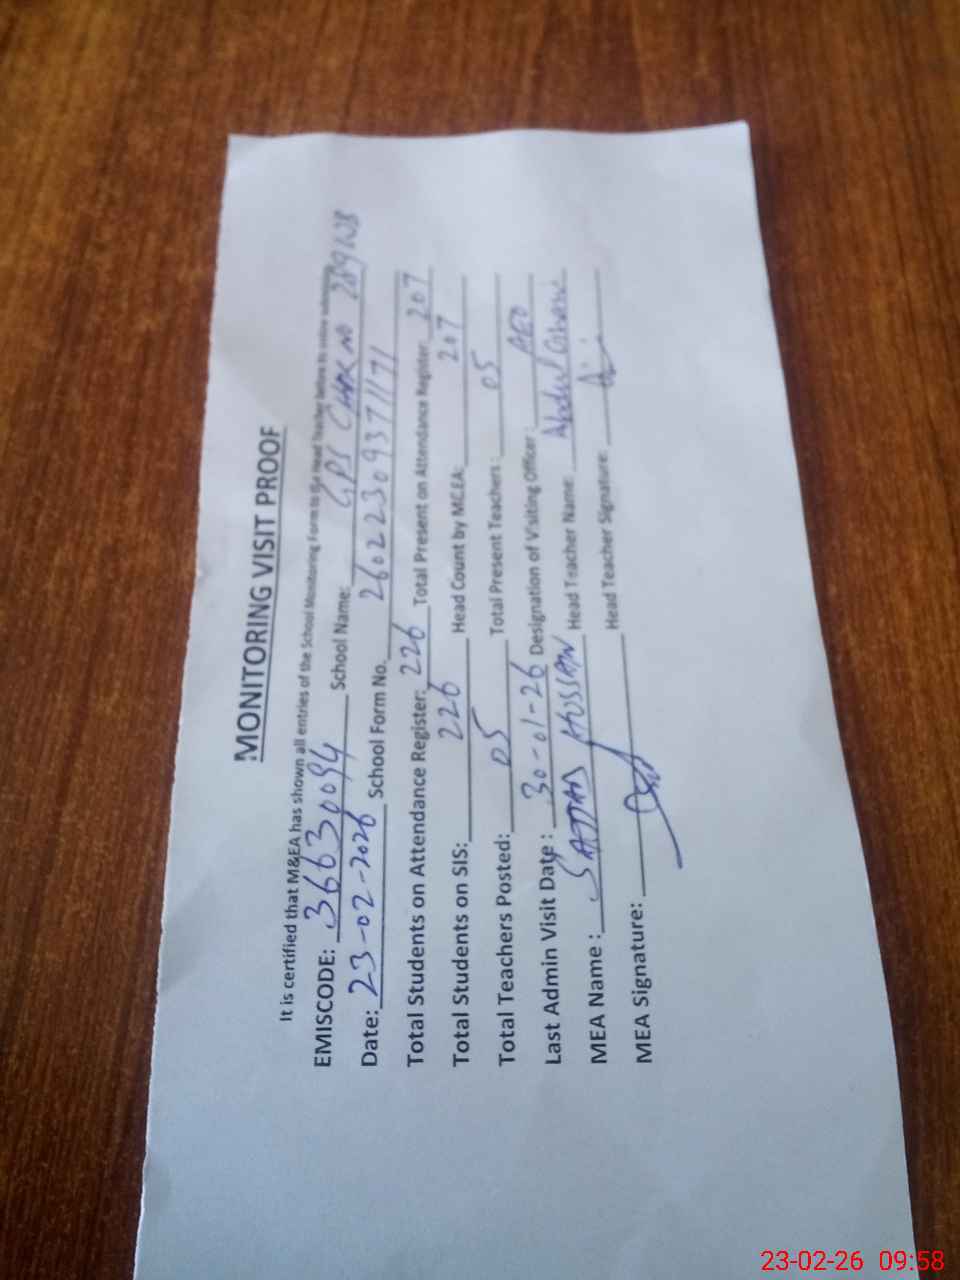 MONITORING VISIT PROOF
It is certified that M&EA has shown all entries of the School Monitoring Form to the Head Teacher before its online submission
EMISCODE: 36630094 School Name: GPS CHAK NO 289
Date: 23-02-2026 School Form No. 26022309371171
Total Students on Attendance Register: 226 Total Present on Attendance Register: 207
Total Students on SIS: 226 Head Count by MCEA: 207
Total Teachers Posted: 05 Total Present Teachers: 05
Last Admin Visit Date: 30-01-26 Designation of Visiting Officer: AEO
MEA Name: SAJJAD HUSSAIN Head Teacher Name: Abdul
MEA Signature: Head Teacher Signature:
23-02-26 09:58